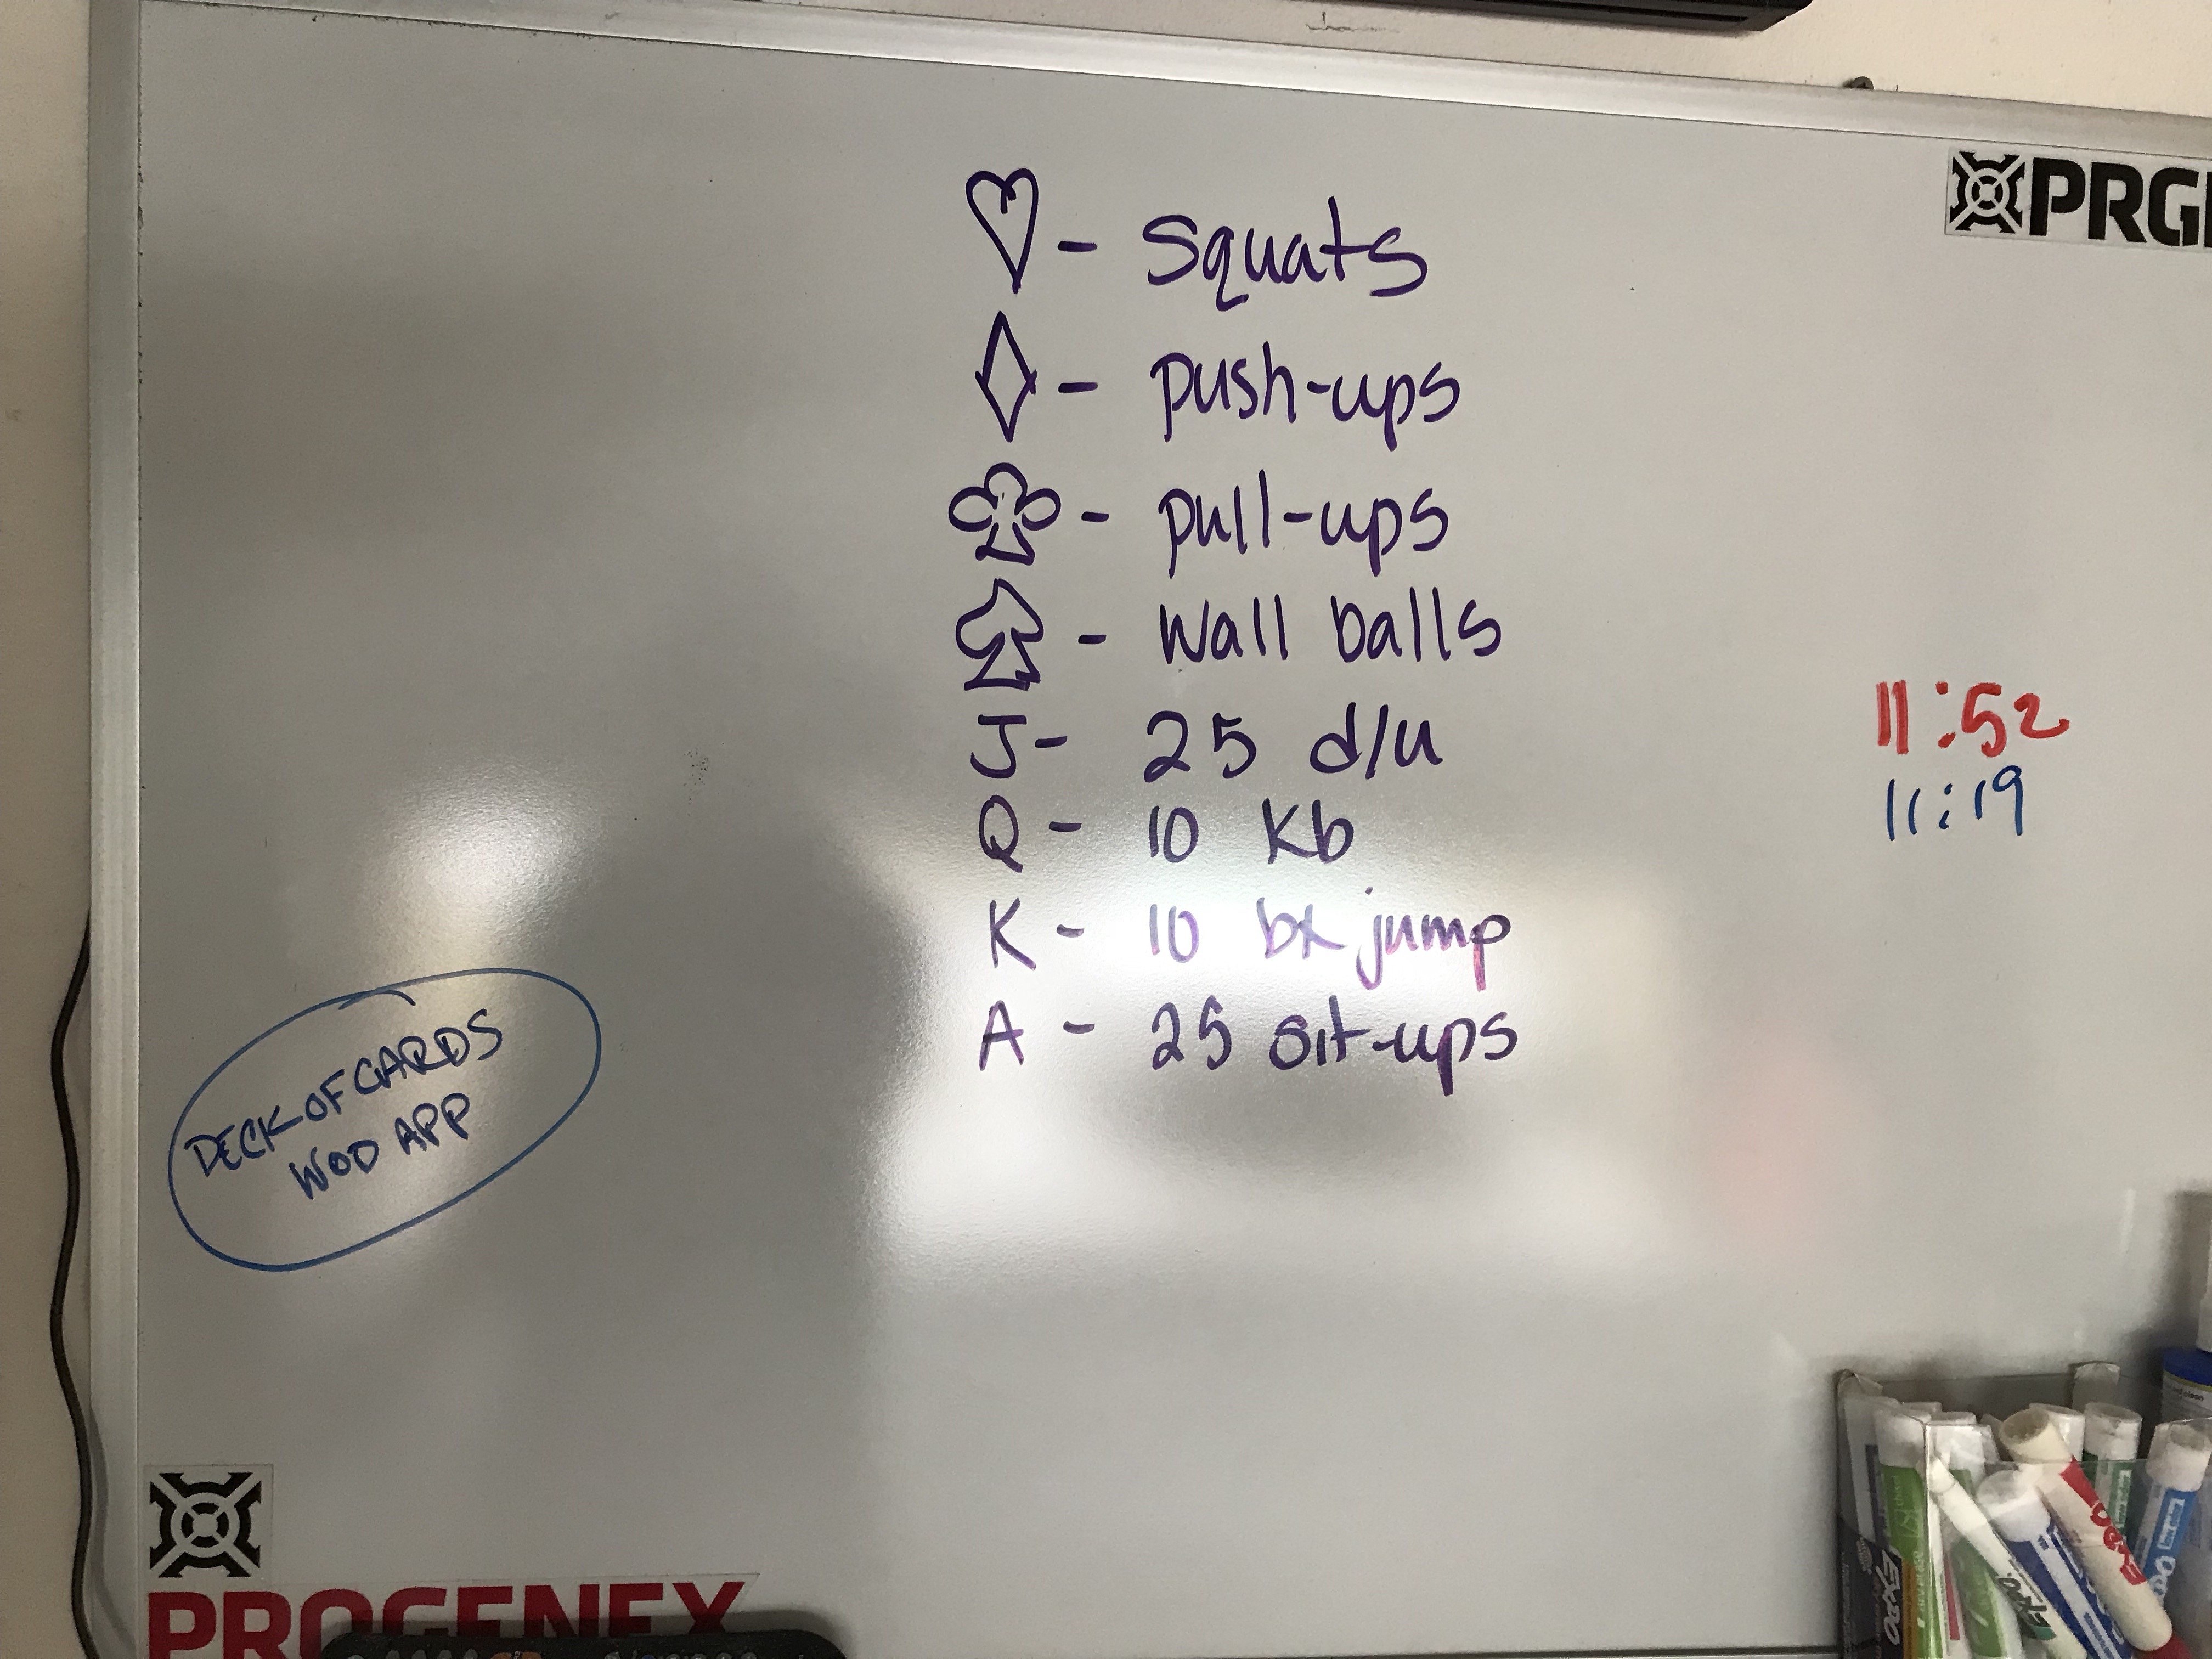 ♡ - squats
◇ - push-ups
♧ - pull-ups
♤ - wall balls
J - 25 d/u
Q - 10 Kb
K - 10 bx jump
A - 25 sit-ups
11:52
11:19
DECK OF CARDS
WOD APP
PROGENEX
EXPO
EXPO
EXPO